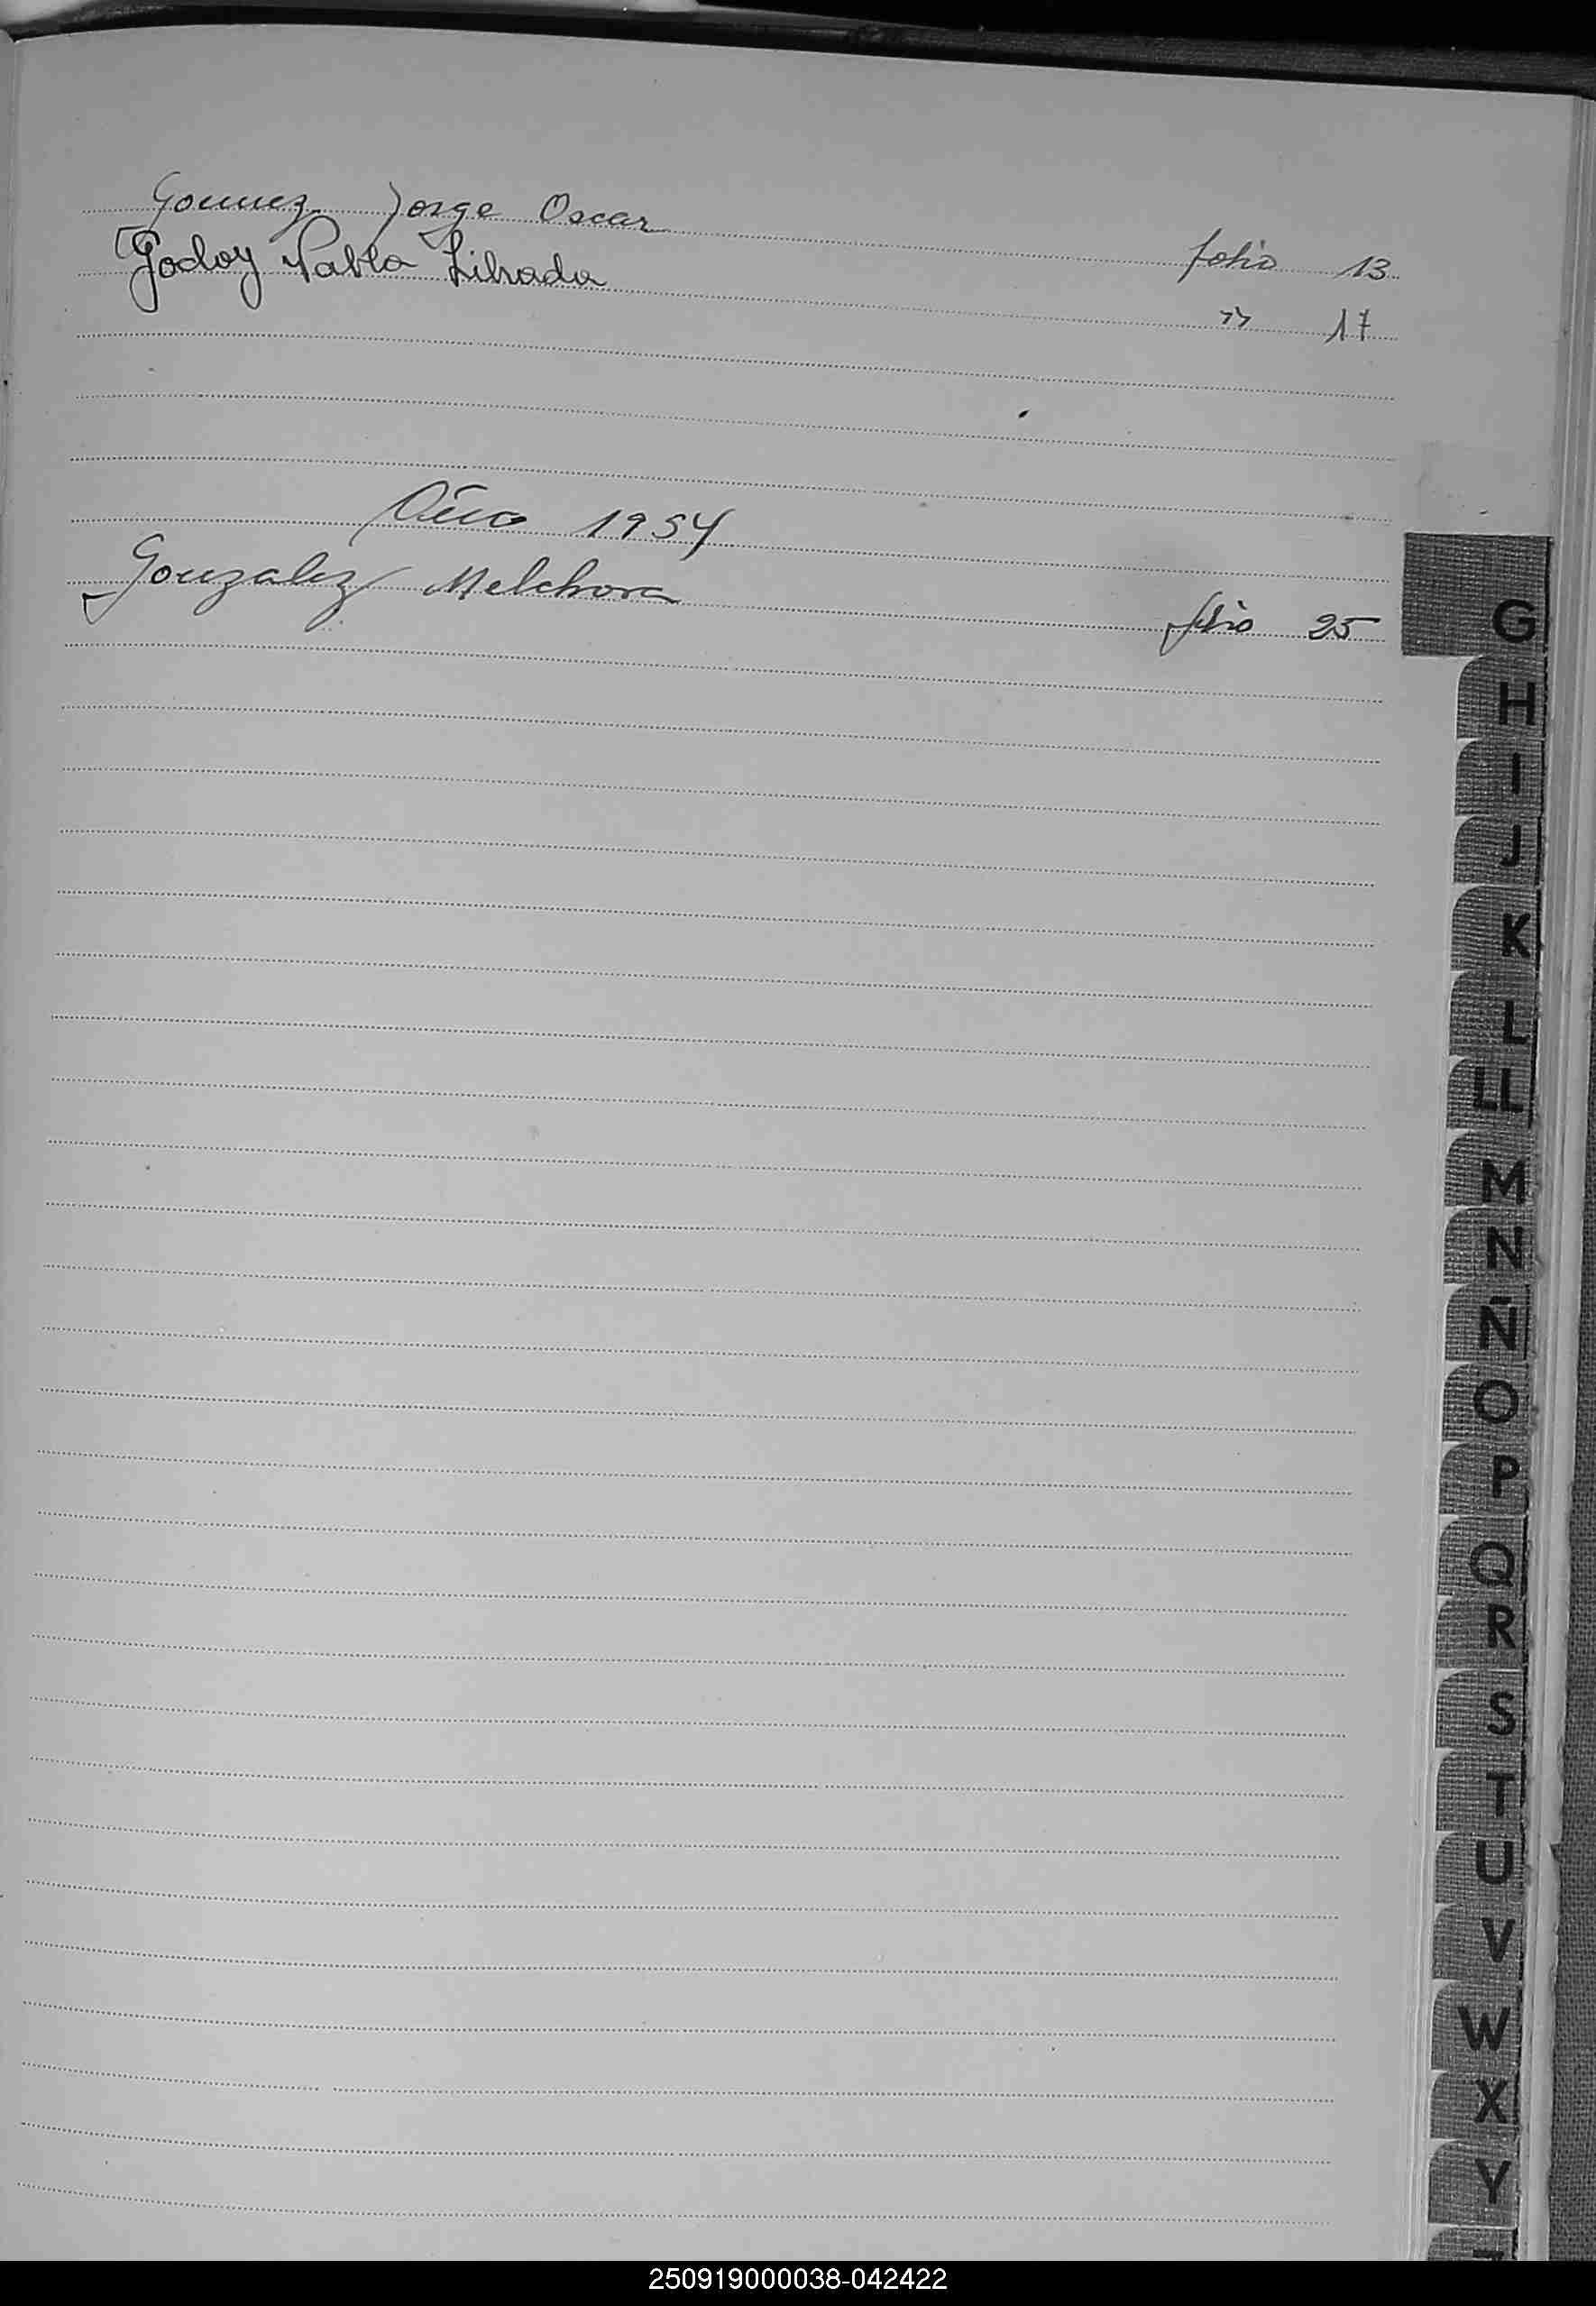 Gomez Jorge Oscar folio 13
Godoy Pabla Librada " 17
Año 1954
Gonzalez Melchora folio 25
G
H
I
J
K
L
LL
M
N
Ñ
O
P
Q
R
S
T
U
V
W
X
Y
250919000038-042422